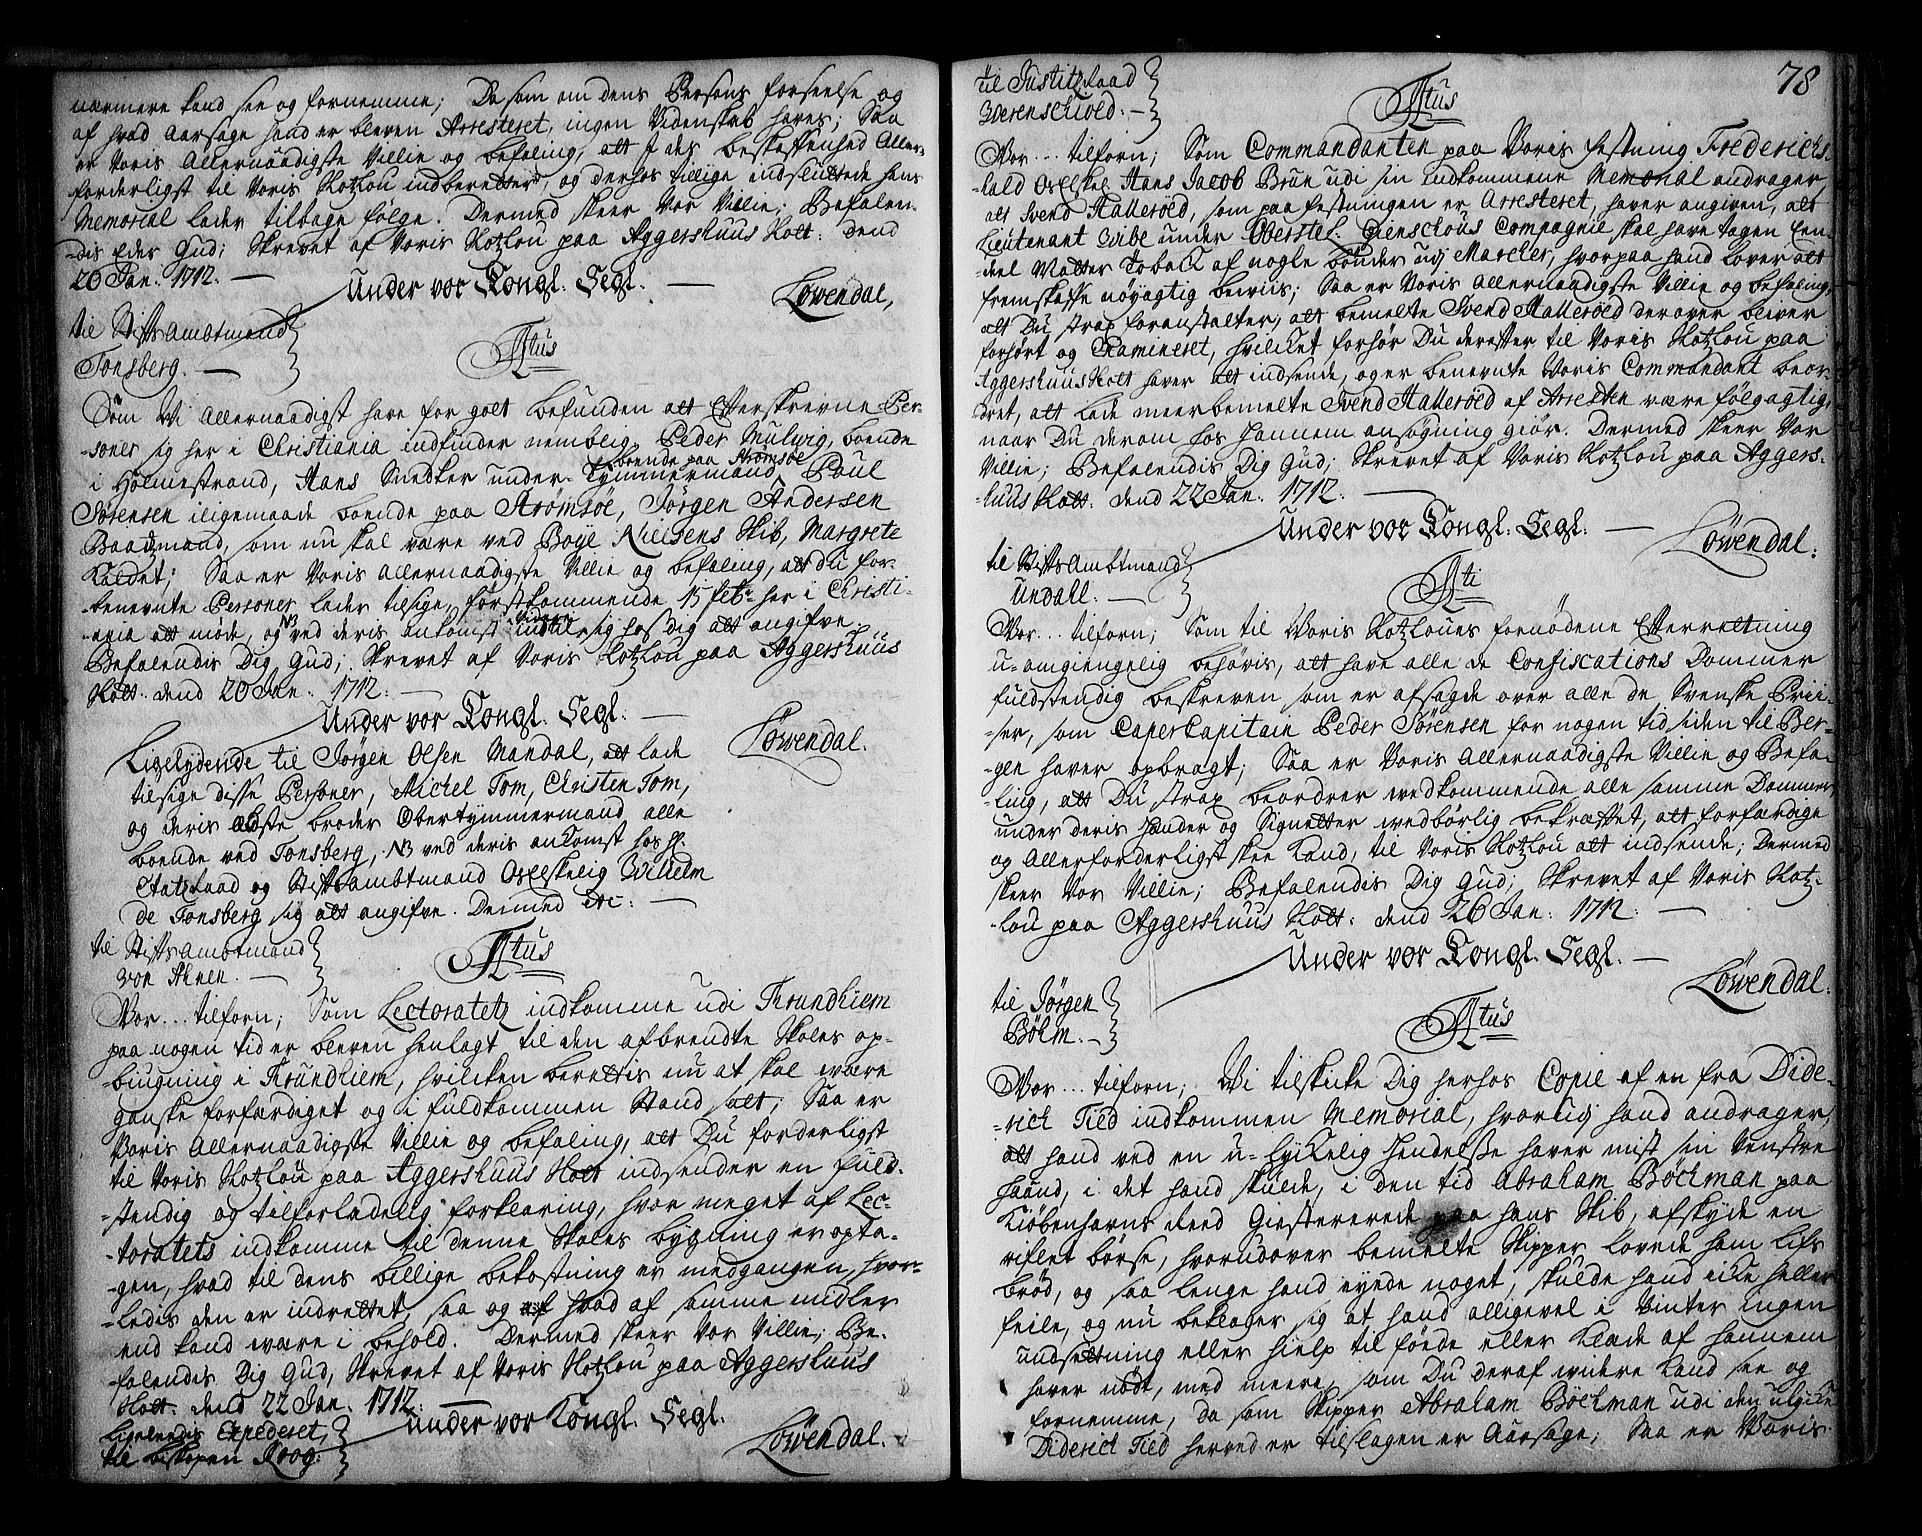 nærmere kand see og fornemme; Da som om dens Persons forseelse og
af hvad Aarsage hand er bleven Arresteret, ingen Videnskab haves; Saa
er Voris Allernaadigste Villie og befaling, att I des beskaffenhed Aller-
forderligst til Voris Slotzlou indberetter, og derhos tillige indsluttede hans
Memorial lader tilbage følge. Dermed skeer Vor Villie; Befalen-
-dis Eder Gud; Skrevet af Voris Slotzlou paa Aggershuus Slott: dend
20 Jan: 1712. —
Under vor Kongl. Segl. —
Løwendal,
til Stifts Ambtmand
Tonsberg. —
F4tus
Som Vi Allernaadigst have for gott befunden att Efterskrevne Per-
-soner sig her i Christiania indfinder nemblig, Peder Mulvig, boende
i Holmestrand, Hans Snedker under-Tymmermand boende paa Strømsøe Poul
Sørensen iligemaade boende paa Strømsøe, Jørgen Andersen
Baadzmand, som nu skal være ved Boye Nielsens Skib, Margrete
kaldet; Saa er Voris Allernaadigste Villie og befaling, att du for-
-benevnte Personer lader tilsige, førstkommende 15 febr: her i Christi-
-ania att møde, og NB ved deris ankomst sig hos dig att angifve.
Befalendis Dig Gud; Skrevet af Voris Slotzlou paa Aggershuus
Slott: dend 20 Jan: 1712. —
Under vor Kongl. Segl. —
Løwendal.
Ligelydende til Jørgen Olsen Mandal, att lade
tilsige disse Personer, Michel Tom, Christen Tom,
og deris ældste broder Obertymmermand, alle
boende ved Tonsberg, NB ved deris ankomst hos H.
Etatzraad og Stifts Ambtmand Velædelig Wilhelm
de Tonsberg sig att angifve. Dermed etc: —
til Stifts Ambtmand
von Ahnen. —
Vor... tilforn; Som Lectoratetz indkomme udi Trundhiem
paa nogen tid er bleven henlagt til den afbrendte Skoles op-
-biugning i Trundhiem, hvilcken berettis nu at skal være
ganske forfærdiget og i fuldkommen Stand satt; Saa er
Voris Allernaadigste Villie og befaling, att Du forderligst
til Voris Slotzlou paa Aggershuus Slott indsender en fuld-
-stendig og tilforladelig forklaring, hvor meget af Lec-
-toratets indkomme til denne Skoles bygning er opta-
-gen, hvad til dens billige bekostning er medgangen, hvor-
-ledis den er indrettet, saa og hvad af samme midler
end kand være i behold. Dermed skeer Vor Villie; Be-
falendis Dig Gud, Skrevet af Voris Slotzlou paa Aggershuus
Slott: dend 22 Jan: 1712. —
Under vor Kongl. Segl.
Løwendal.
Ligelendis Expederet,
til biskopen Krog.
78
til Justitzraad
Werenschiold. —
Vor... tilforn; Som Commandanten paa Voris festning Frederichs-
-hald Hans Jacob Brun udi sin indkomne Memorial andrager,
att Svend Hallerøed, som paa festningen er Arresteret, haver angiven, att
Lieutenant Wibe under Oberstel. Gienschous Compagnie skal have tagen Een-
-deel Matter Toback af nogle bønder udj Marcher, hvorpaa hand lover att
fremskaffe nøyagtig beviis; Saa er Voris Allernaadigste Villie og befaling,
att Du strax foranstalter, att bemelte Svend Hallerøed derover bliver
forhørt og Examineret, hvilcket forhør Du derefter til Voris Slotzlou paa
Aggershuus Slott haver att indsende, og er benevnte Voris Commandant beor-
dret, att lade meerbemelte Svend Hallerøed af Arresten være følgagtig,
naar Du derom hos hannem ansøgning giør. Dermed skeer Vor
Villie; Befalendis Dig Gud; Skrevet af Voris Slotzlou paa Aggers-
-huus Slott: dend 22 Jan: 1712. —
Under vor Kongl. Segl. —
Løwendal.
til Stifts Ambtmand
Undall. —
Vor... tilforn; Som til Voris Slotzloues fornødene Efterretning
u-omgiengelig behøvis, att have alle de Confiscations Dommer
fuldstendig beskreven som er afsagde over alle de Svenske Prii-
-ser, som Caper Capitain Peder Sørensen for nogen tid siden til Ber-
-gen haver opbragt; Saa er Voris Allernaadigste Villie og Befa-
-ling, att Du strax beordrer vedkommende alle samme Dommer
under deris Hænder og Signetter wedbørlig bekræftet, att forfærdige
og Allerforderligst skee kand, til Voris Slotzlou att indsende; Dermed
skeer Vor Villie; Befalendis Dig Gud; Skrevet af Voris Slotz-
-lou paa Aggershuus Slott: dend 26 Jan: 1712. —
Under vor Kongl. Segl. —
Løwendal.
til Jørgen
Bølm. —
Vor... tilforn; Vi tilskicke Dig herhos Copie af en fra Dide-
-rich Tieb indkommen Memorial, hvorlig hand andrager,
att hand ved en u-lyckelig Hendelsse haver mist sin Venstre
Haand, i det hand skulde, i den tid Abraham Böckman paa
Kiøbenhavns Reed Giestererede paa hans Skib, afskyde en
riflet bøsse, hvorudover bemelte Skipper lovede ham lifs
brød, og saa lenge hand eyede noget, skulde hand icke heller
feile, og nu beklager sig at hand alligevel i Vinter ingen
undsetning eller hielp til føede eller klæde af hannem
haver nødt, med meere, som Du deraf widere kand see og
fornemme, da som Skipper Abraham Böckman udi den ulycke
Diderich Tieb herved er tilslagen er Aarsage; Saa er Voris